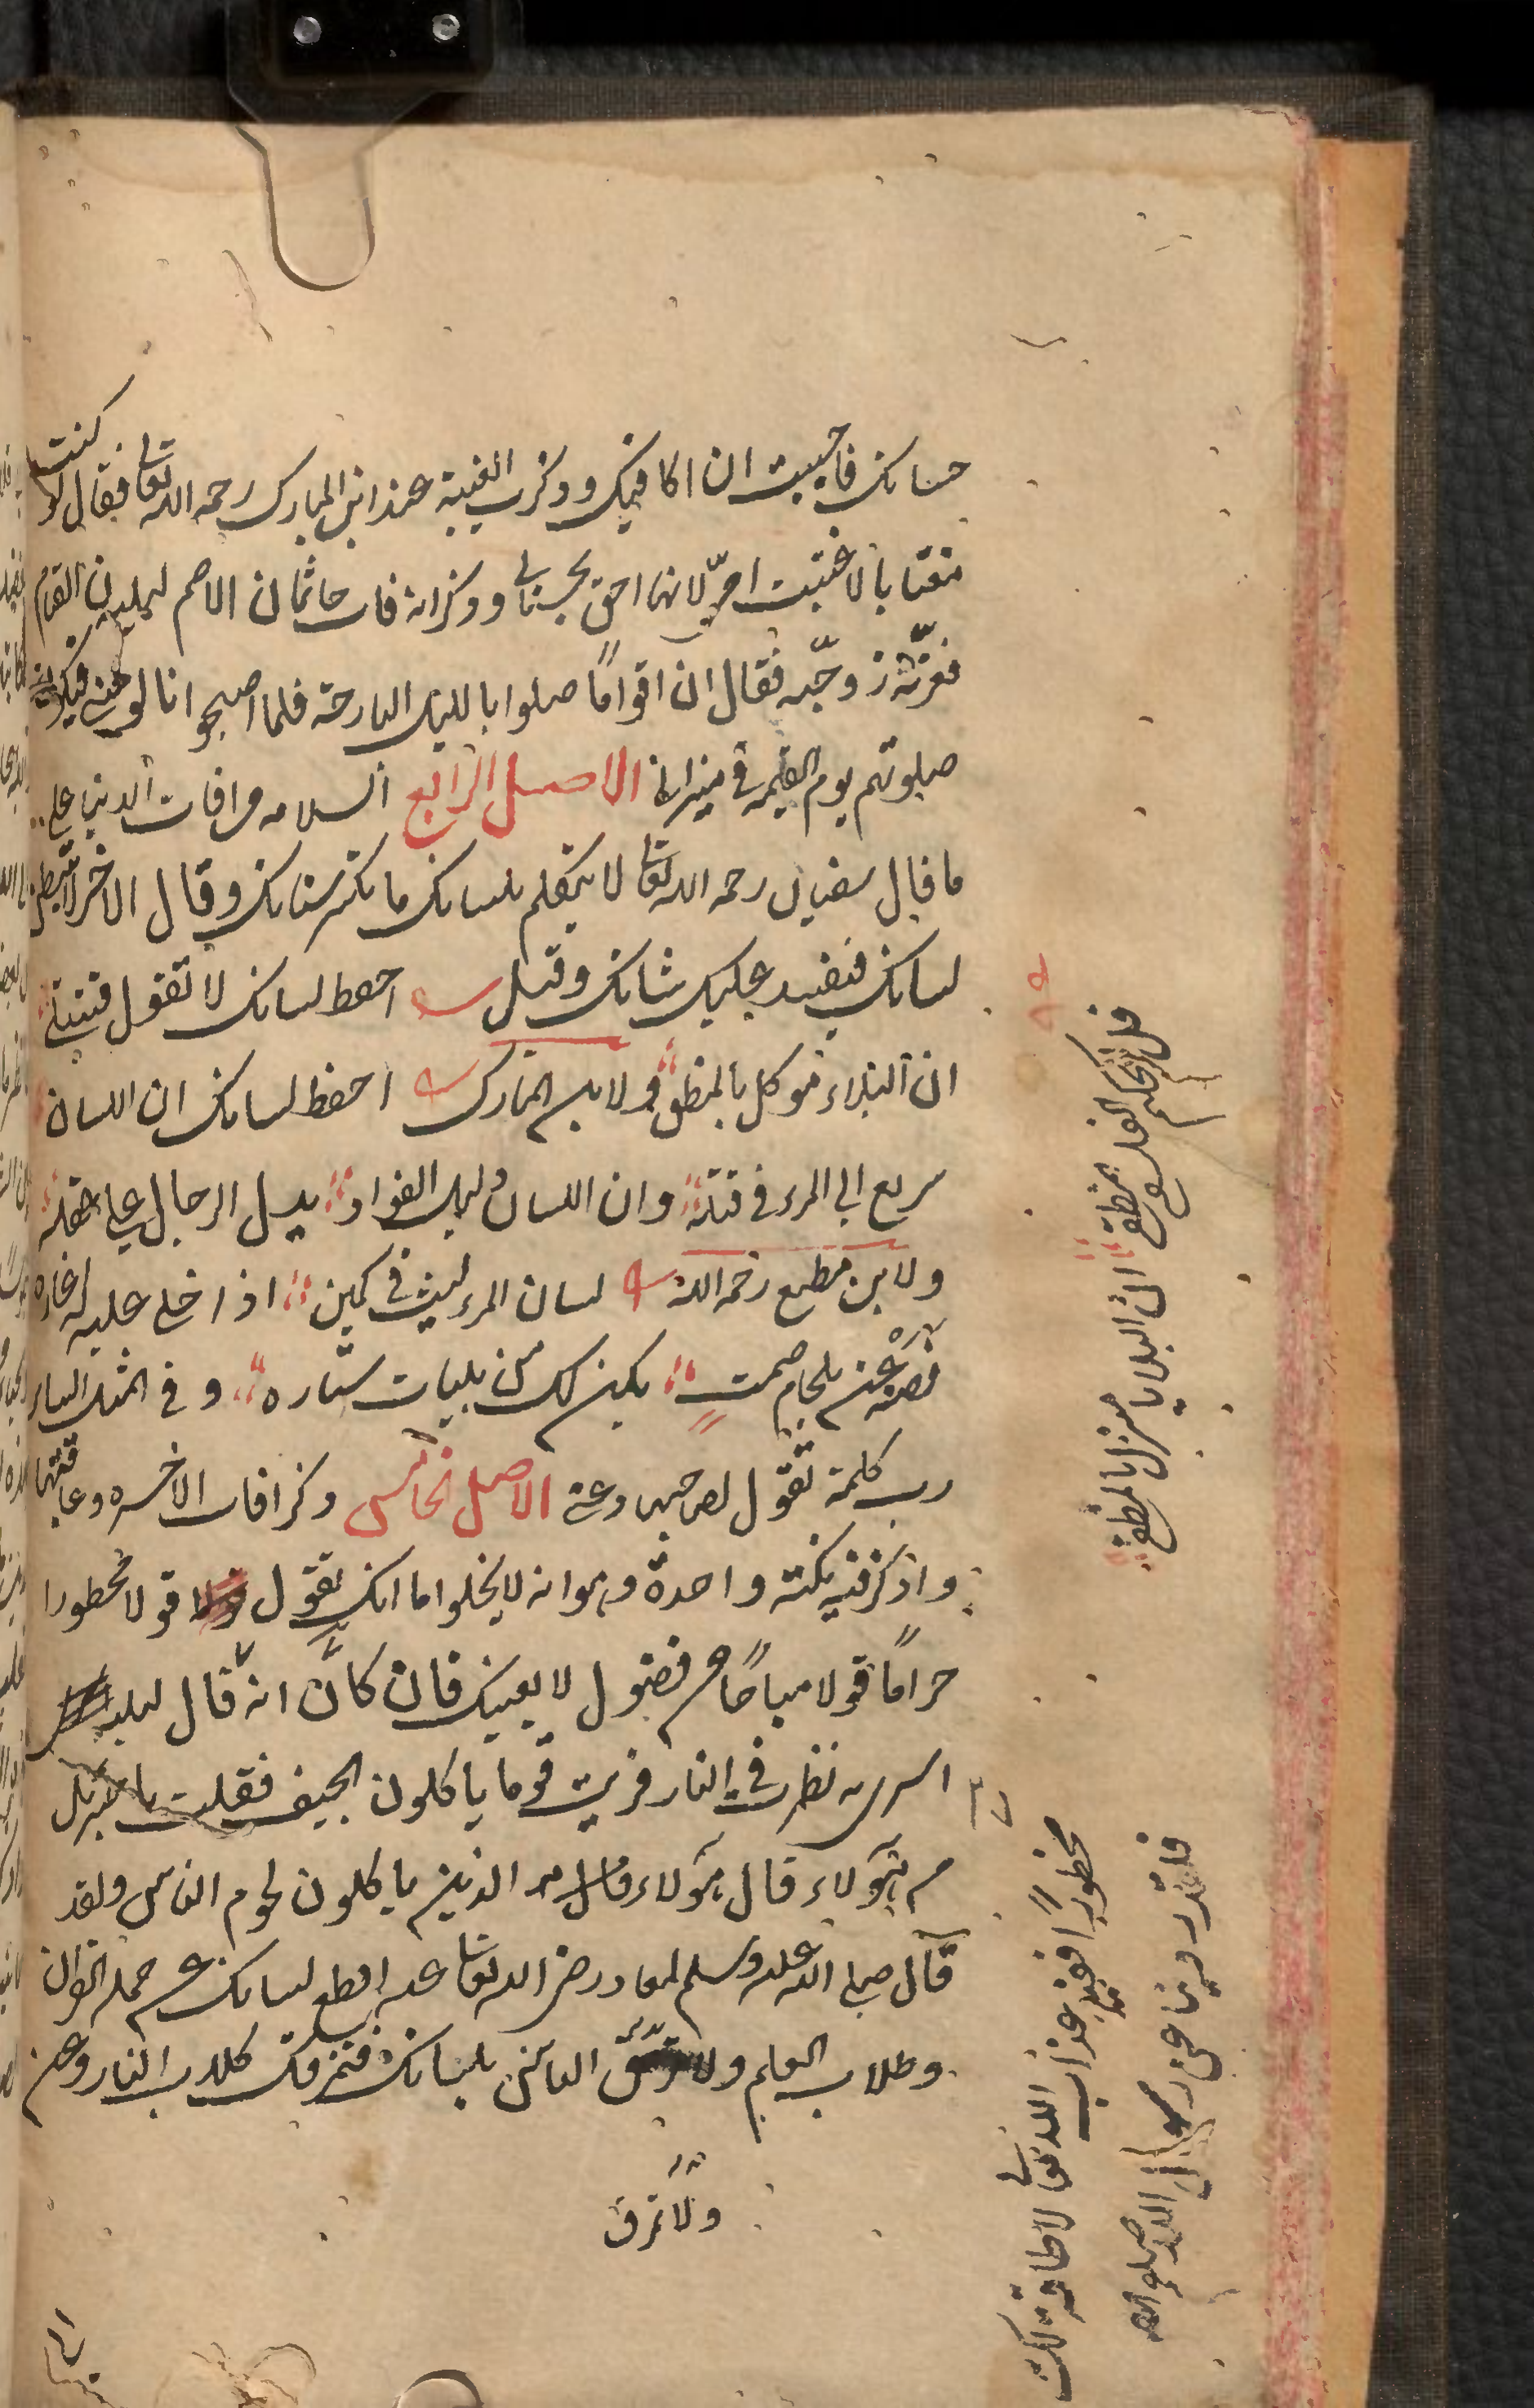 حسناتك فاحببت ان اكافيك وذكرت الغيبة عند ابن المبارك رحمه الله تعالى فقال لو كنت
مغتابا لاغتبت امي لانها احق بحسناتي وذكر انه فات حاتما ن الاصم ليلة من القيام
فعزته زوجته فقال ان اقواما صلوا بالليل البارحة فلما اصبحوا انالو مني فيكون
صلوتهم يوم القيمة في ميزاني الاصل الرابع السلامة من افات الدنيا على
ما قال سفيان رحمه الله تعالى لا يتكلم بلسانك ما يكسر اسنانك وقال الاخر لا تبسطن
لسانك فيفسد عليك شانك وقيل احفظ لسانك لا تقول فتبتلى
ان البلاء موكل بالمنطق ولابن المبارك احفظ لسانك ان اللسان
سريع الى المرء في قتله وان اللسان دليل الفواد يدل الرجال على عقله
ولابن مطيع رحمه الله لسان المرء ليث في كمين اذا خلى عليه له اغاره
فصنه عن بلجام صمت يكن لك من بليات ستاره وفي المثل الساير
رب كلمة تقول لصاحبها دعني الاصل الخامس ذكر افات الاخرة وعاقبتها
واذكر فيه نكتة واحدة وهو انه لا يخلوا اما انك تقول قولا محظورا
حراما قولا مباحا من فضول لا يعنيك فان كان انه قال ليلة
اسرى به نظرت في النار فريت قوما ياكلون الجيف فقلت يا جبريل
من هؤلاء قال هؤلاء الذين ياكلون لحوم الناس ولقد
قال صلى الله عليه وسلم لمعاذ رضي الله تعالى عنه اقطع لسانك عن حملة القران
وطلاب العلم ولا تمزق الناس بلسانك فتمزقك كلاب النار وعن
ولا تمزق
قال الحكيم الفلسفي المنطقي ان البلايا منزل بالمنطق
محظورا ففيه عذاب الله تعالى لا طاقة لك
فلقد روينا عن رسول الله صلوات الله